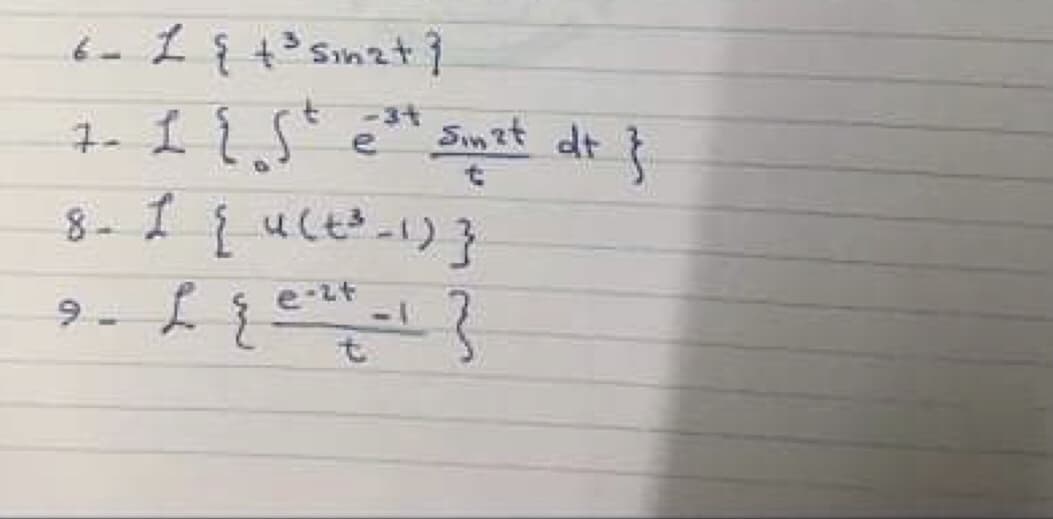 6- ℒ { t³ sin2t }
7- ℒ { ₀∫ᵗ e⁻³ᵗ sin2t/t dt }
8- ℒ { u(t³-1) }
9- ℒ { e⁻²ᵗ-1/t }